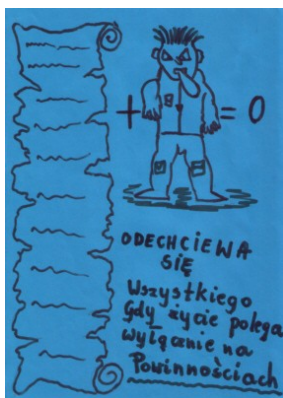 + = 0
ODECHCIEWA
SIĘ
Wszystkiego
Gdy życie polega
wyłącznie na
Powinnościach